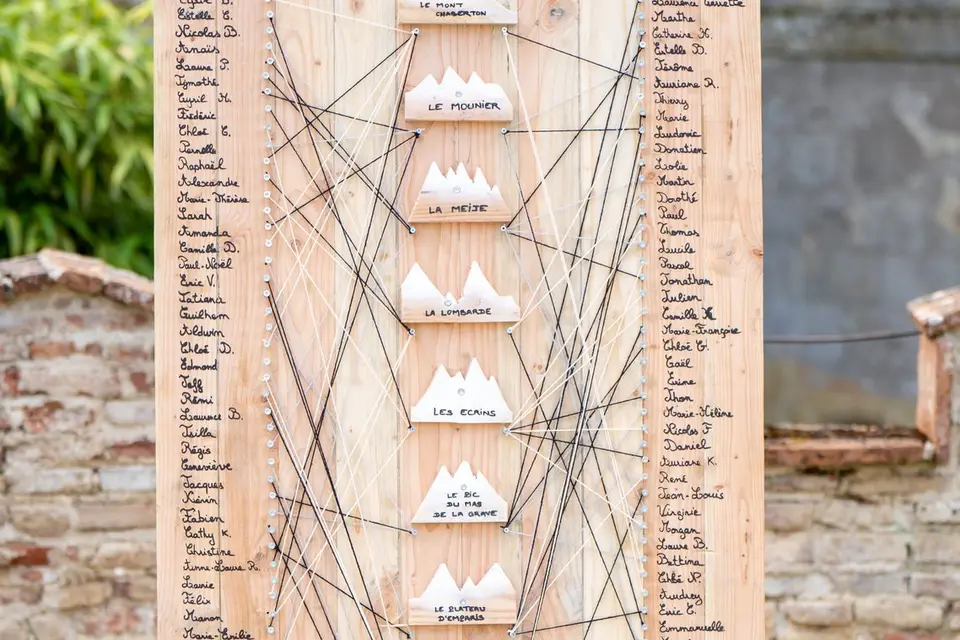 Estelle C.
Nicolas B.
Anaïs
Laure P.
Tymothé
Cyril H.
Frédéric
Chloé C.
Pernelle
Raphaël
Alexandre
Marie-Thérèse
Sarah
Amanda
Camille D.
Paul-Noël
Eric V.
Tatiana
Guilhem
Aldwin
Chloé D.
Edmond
Jeff
Rémi
Laurence B.
Tsilla
Régis
Geneviève
Jacques
Kévin
Fabien
Cathy K.
Christine
Anne-Laure R.
Laurie
Félix
Manon
Marie-Emilie
LE MONT
CHABERTON
LE MOUNIER
LA MEIJE
LA LOMBARDE
LES ECRINS
LE PIC
DU MAS
DE LA GRAVE
LE PLATEAU
D'EMPARIS
Marthe
Catherine H.
Estelle D.
Jérôme
Auriane R.
Thierry
Marie
Ludovic
Donatien
Lolie
Martin
Dorothé
Paul
Thomas
Lucile
Pascal
Jonathan
Julien
Camille
Marie-Françoise
Chloé G.
Gaël
Erine
Jhon
Marie-Hélène
Nicolas F
Daniel
Auriane K.
René
Jean-Louis
Virginie
Morgan
Laure B.
Bettina
Chloé N.
Audrey
Eric C.
Emmanuelle